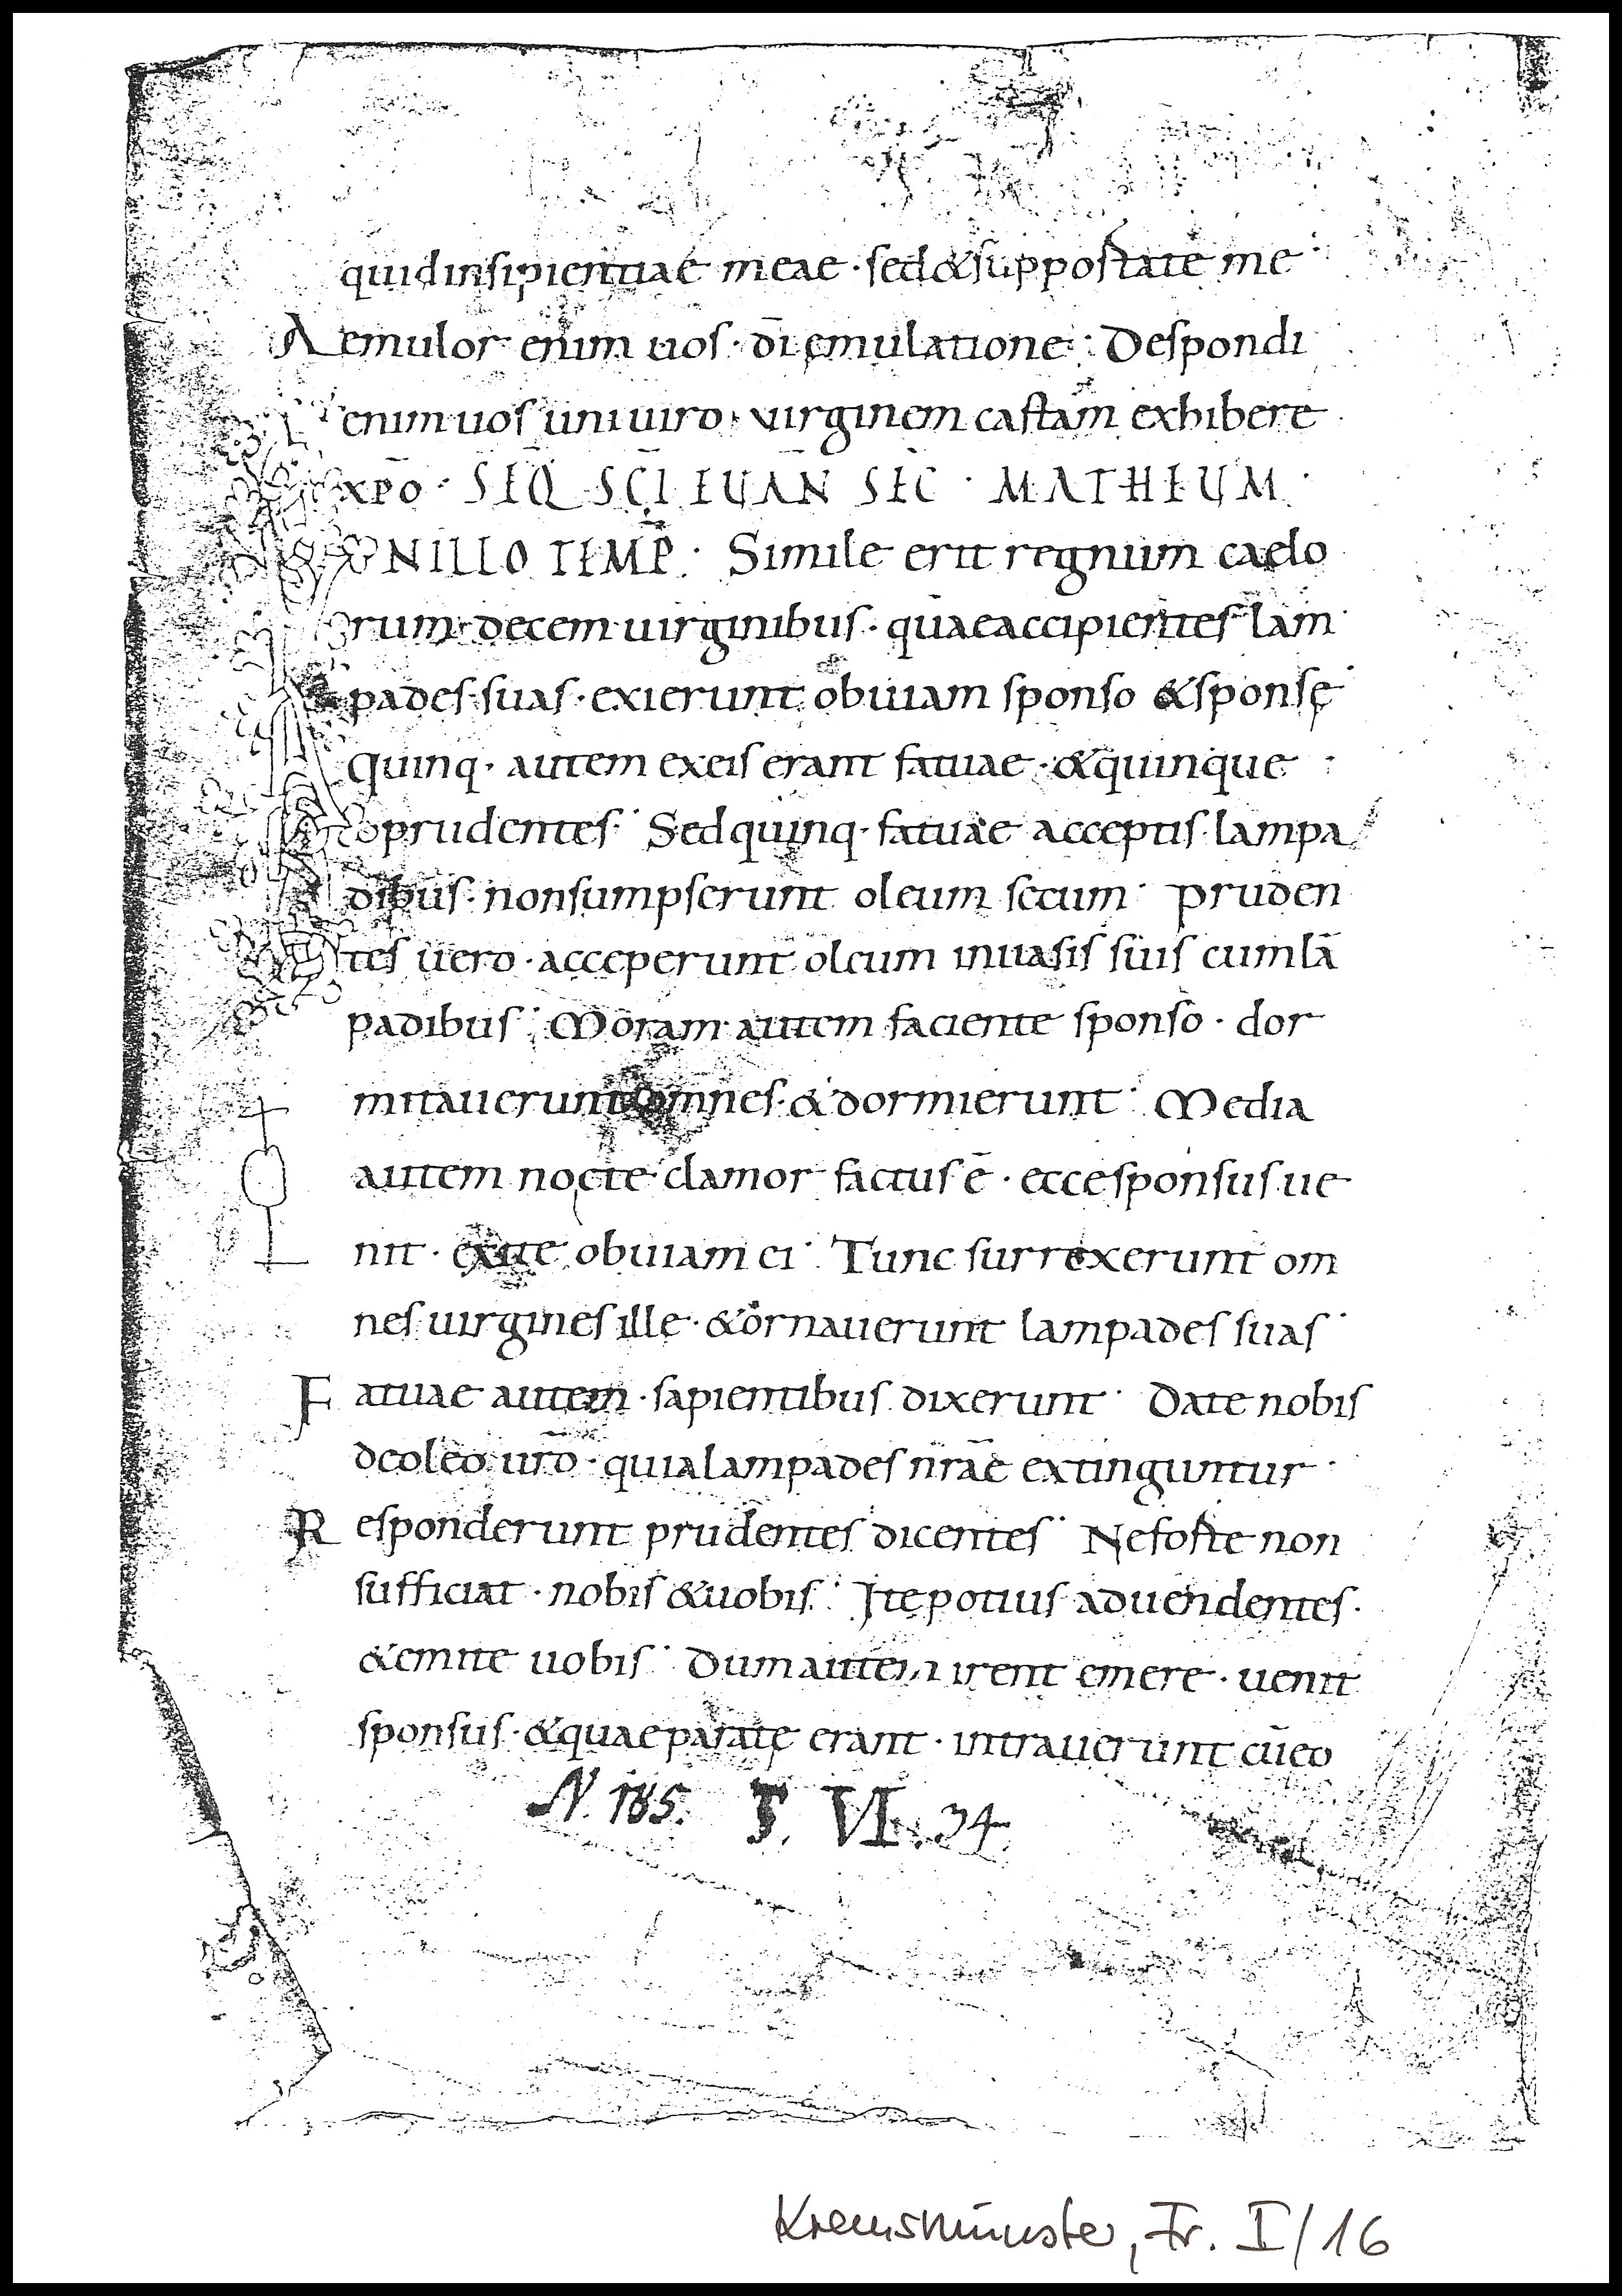 quid insipientiae meae · sed & suppostate me
Aemulor enim uos · dī ęmulatione · Despondi
enim uos uni uiro · virginem castam exhibere
xp̄o · SEQ̄ SC̄I EUAN̄ SEC̄ · MATHEUM ·
NILLO TEMP̄ · Simile erit regnum caelo
rum decem uirginibus · quae accipientes lam
pades suas · exierunt obuiam sponso & sponsę
Quinq · autem ex eis erant fatuae · & quinque
prudentes · Sed quinq · fatuae acceptis lampa
dibus · non sumpserunt oleum secum · pruden
tes uero · acceperunt oleum in uasis suis cum lā
padibus · Moram autem faciente sponso · dor
mitauerunt omnes · & dormierunt · Media
autem nocte clamor factus ē · ecce sponsus ue
nit · exite obuiam ei · Tunc surrexerunt om
nes uirgines ille · & ornauerunt lampades suas ·
Fatuae autem · sapientibus dixerunt · Date nobis
de oleo ur̄o · quia lampades nr̄ae extinguntur ·
Responderunt prudentes dicentes · Ne foste non
sufficiat · nobis & uobis · Ite potius ad uendentes ·
& emite uobis · Dum autem irent emere · uenit
sponsus · & quae paratę erant · intrauerunt cū eo
N. 185. T. VI. 34
Kremsmünster, Fr. I/16